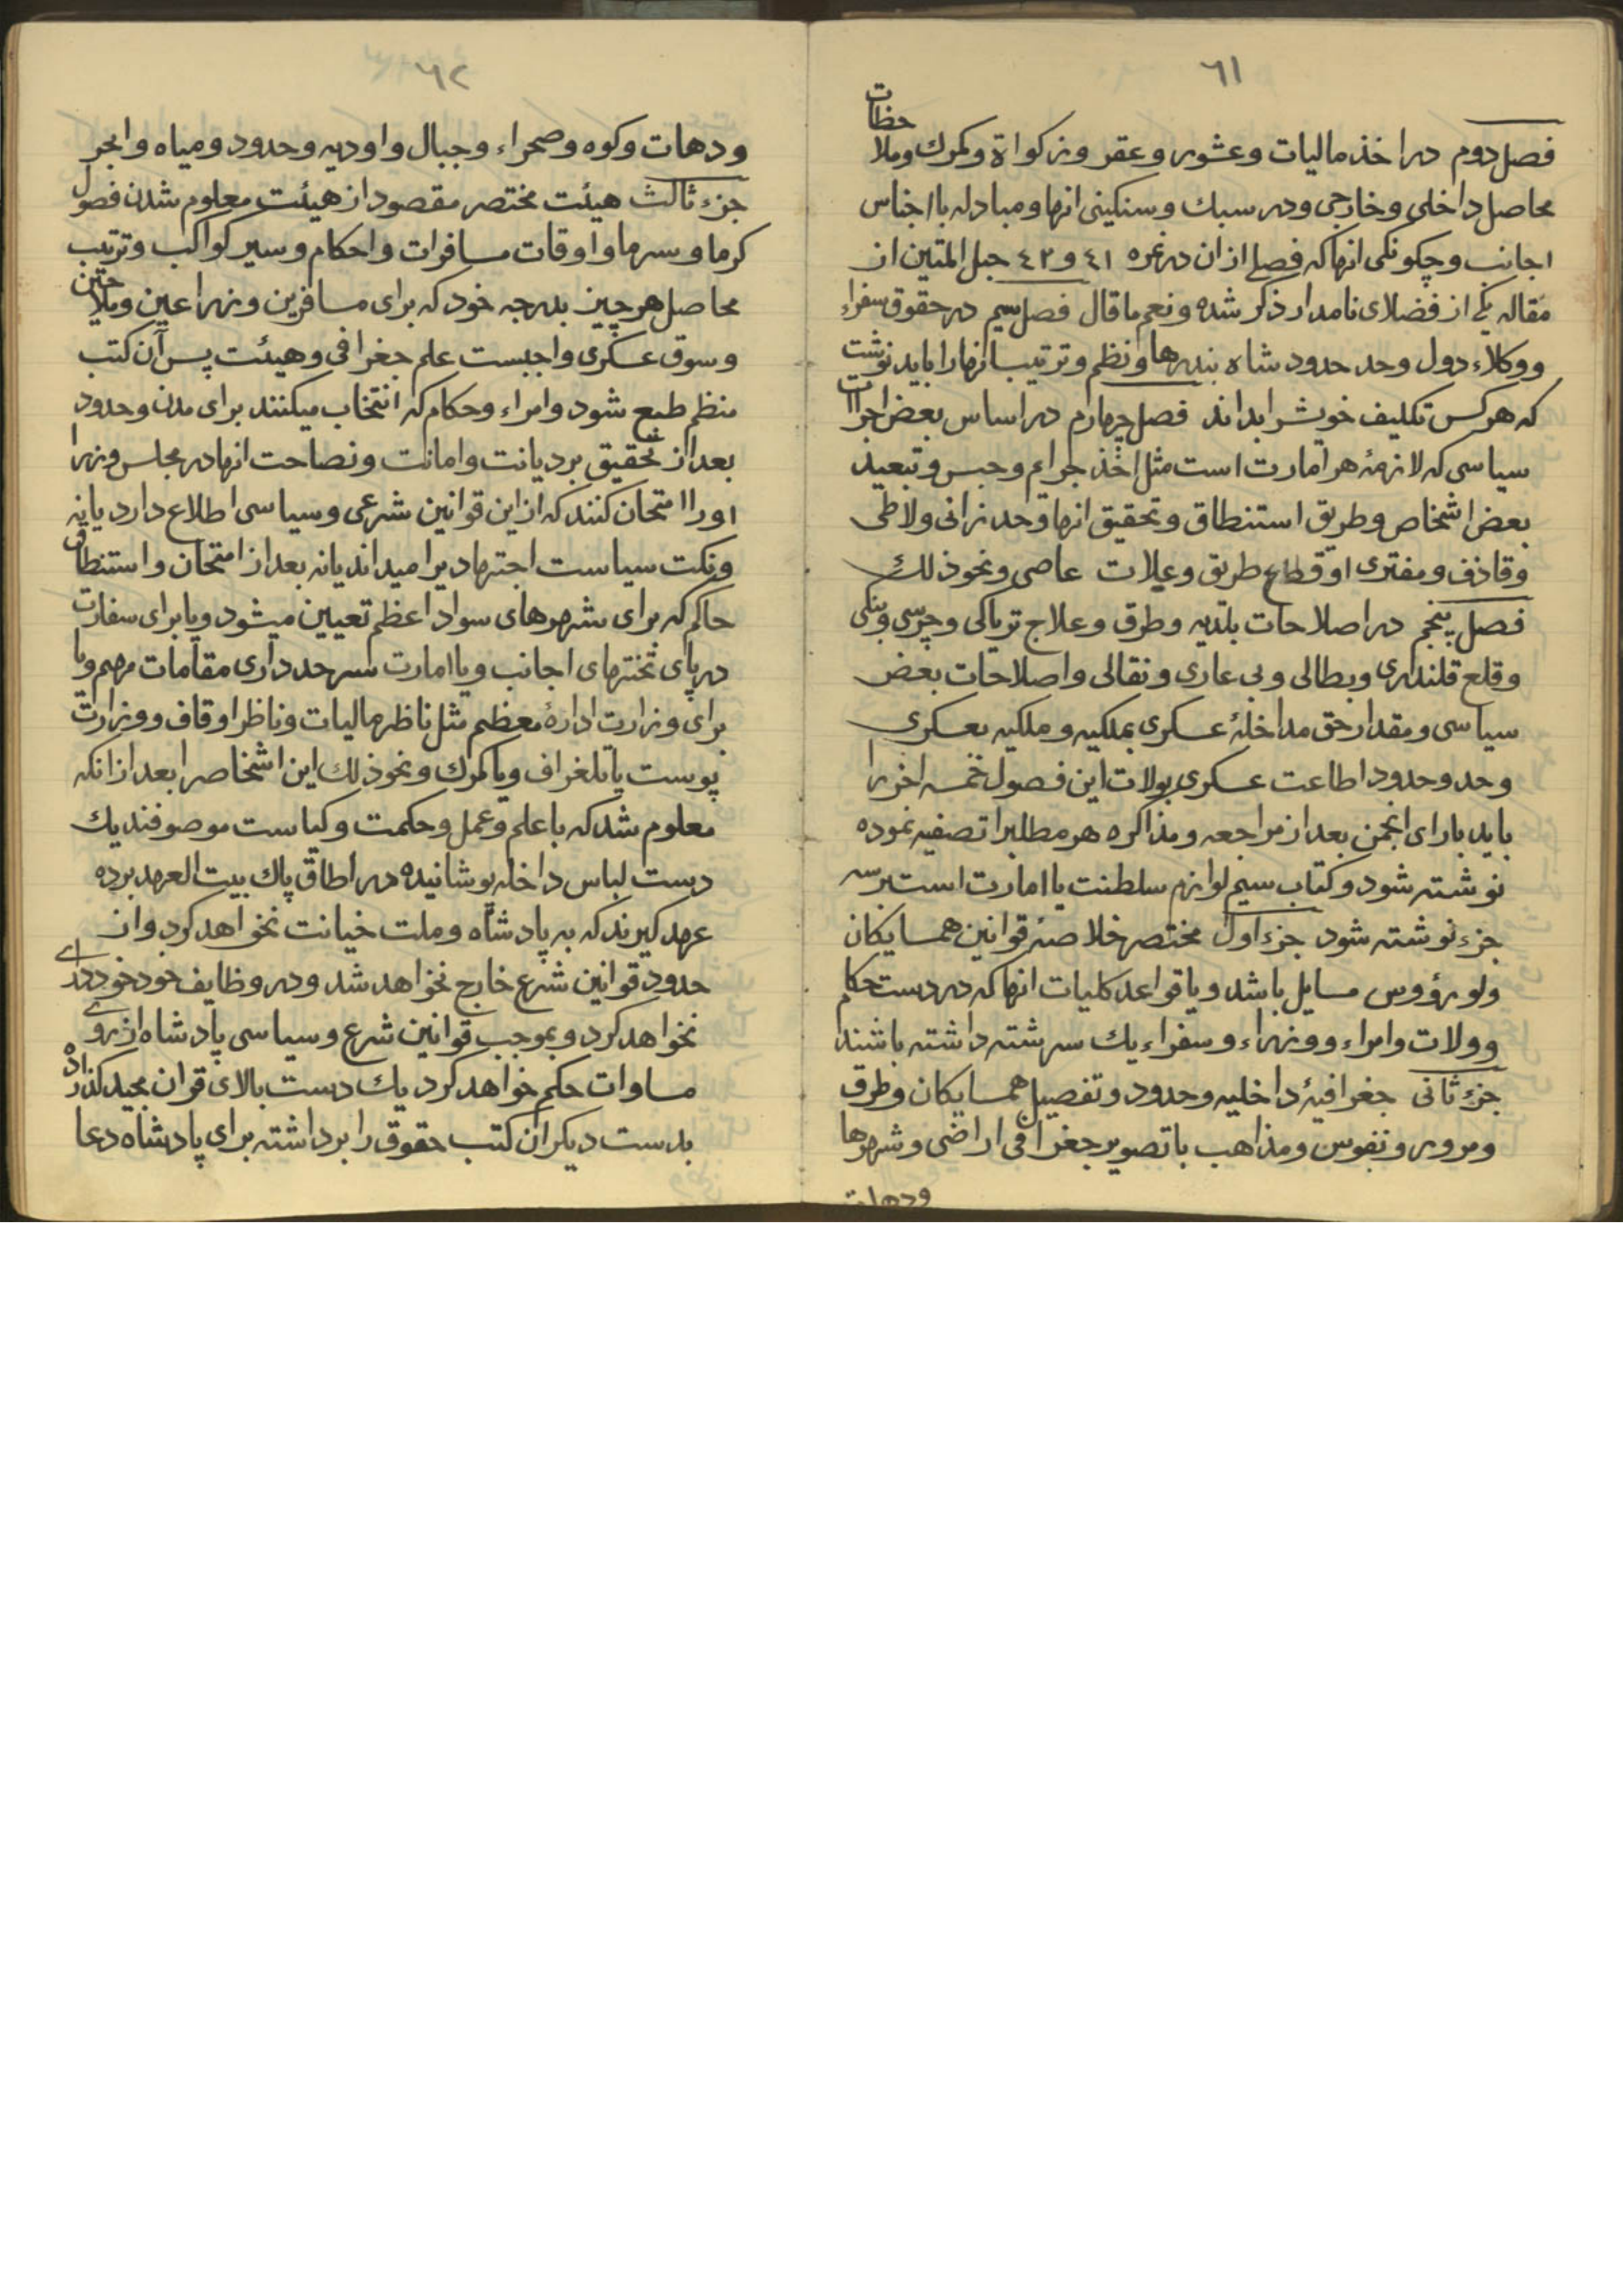 ٦١
فصل دوم در اخذ مالیات و عشور و عقر و زکواة و کمرك و ملاحظات
محاصل داخلی و خارجی و در سبك و سنکینی انها و مبادله باجناس
اجانب و چکونکی انها که فصلی از ان در نمره ٤١ و ٤٢ حبل المتین از
مقاله یکی از فضلای نامدار ذکر شده و نعم ما قال فصل سیم در حقوق سفراء
و وکلاء دول و حد حدود شاه بندرها و نظم و ترتیب انها را باید نوشت
که هر کس تکلیف خویش را بداند فصل چهارم در اساس بعض اجراات
سیاسی که لازمهٔ هر امارت است مثل اخذ جرائم و حبس و تبعید
بعض اشخاص و طریق استنطاق و تحقیق انها و حد زانی و لاطی
و قاذف و مفتری او قطاع طریق و عیلات عاصی و نحو ذلك
فصل پنجم در اصلاحات بلدیه و طرق و علاج تریاکی و چرسی و بنکی
و قلع قلندری و بطالی و بی عاری و نقالی و اصلاحات بعض
سیاسی و مقدار حق مداخلهٔ عسکری بملکیه و ملکیه بعسکری
و حد و حدود اطاعت عسکری بولات این فصول خمسه اخر را
باید بارای انجمن بعد از مراجعه و مذاکره هر مطلبرا تصفیه نموده
نوشته شود و کتاب سیم لوازم سلطنت یا امارت است بر سه
جزء نوشته شود جزء اول مختصر خلاصهٔ قوانین همسایکان
ولو رؤوس مسایل باشد و یا قواعد کلیات انها که در دست حکام
و ولات و امراء و وزراء و سفراء یك سر رشته داشته باشند
جزء ثانی جغرافیهٔ داخلیه و حدود و تفصیل همسایکان و طرق
و مرور و نفوس و مذاهب با تصویر جغرافی اراضی و شهرها
ودهات
٦٢
و دهات و کوه و صحراء و جبال و اودیه و حدود و میاه و ابحر
جزء ثالث هیئت مختصر مقصود از هیئت معلوم شدن فصول
کرما و سرما و اوقات مسافرات و احکام و سیر کواکب و ترتیب
محاصل هر چیز بدرجه خود که برای مسافرین و زراعین و ملاحین
و سوق عسکری واجبست علم جغرافی و هیئت پس آن کتب
منظم طبع شود و امراء و حکام که انتخاب میکنند برای مدن و حدود
بعد از تحقیق بر دیانت و امانت و نصاحت انها در مجلس وزرا
او را امتحان کنند که از این قوانین شرعی و سیاسی اطلاع دارد یا نه
و نکت سیاست اجتهادیرا میداند یا نه بعد از امتحان و استنطاق
حاکم که برای شهرهای سواد اعظم تعیین میشود و یا برای سفارت
در پای تختهای اجانب و یا امارت سر حدداری مقامات مهم و یا
برای وزارت ادارهٔ معظم مثل ناظر مالیات و ناظر اوقاف و وزارت
پوست یا تلغراف و یا کمرك و نحو ذلك این اشخاصرا بعد از انکه
معلوم شد که با علم و عمل و حکمت و کیاست موصوفند یك
دست لباس داخله پوشانیده در اطاق پاك بیت العهد برده
عهد کیرند که به پادشاه و ملت خیانت نخواهد کرد و از
حدود قوانین شرع خارج نخواهد شد و در وظایف خود خود رای
نخواهد کرد و بموجب قوانین شرع و سیاسی پادشاه از روی
مساوات حکم خواهد کرد یك دست بالای قران مجید کذارده
بدست دیکر ان کتب حقوق را برداشته برای پادشاه دعا